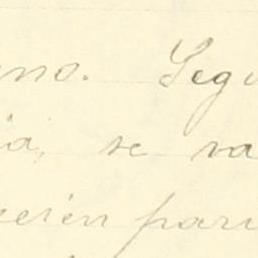 no. Segu
ia, se va
ecién pari